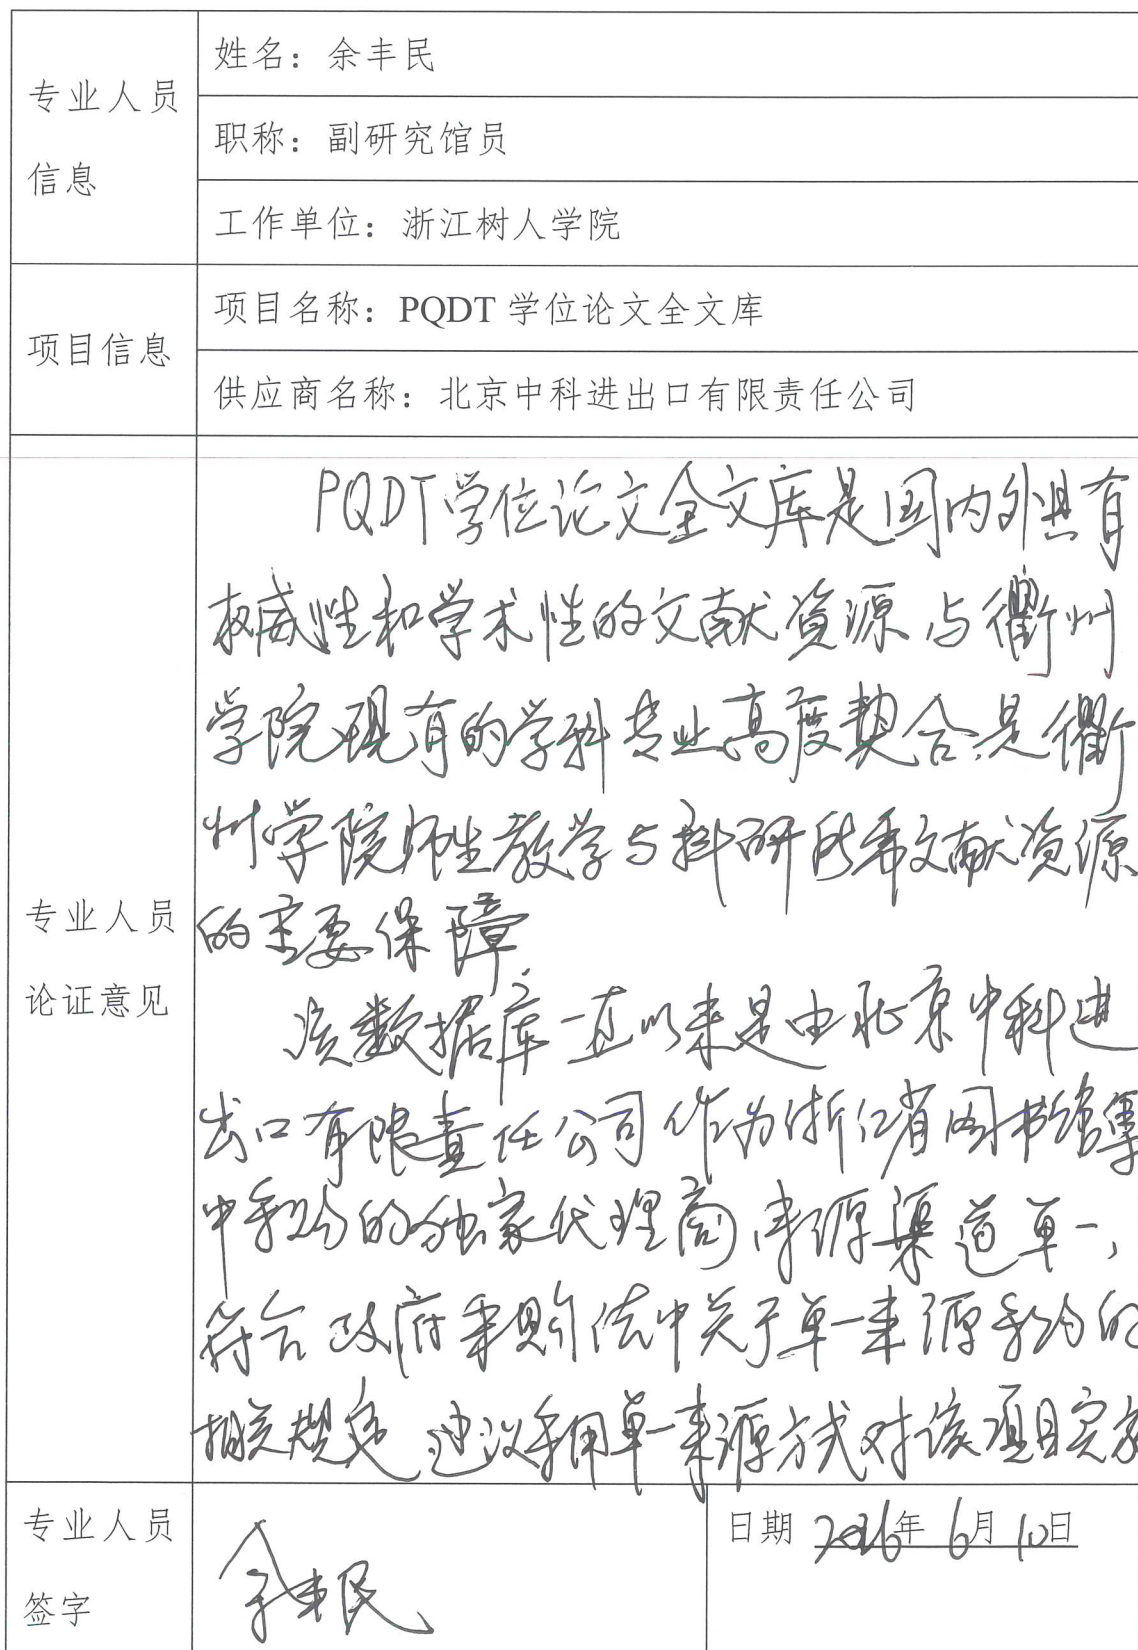 专业人员
信息
姓名：余丰民
职称：副研究馆员
工作单位：浙江树人学院
项目信息
项目名称：PQDT 学位论文全文库
供应商名称：北京中科进出口有限责任公司
专业人员
论证意见
PQDT学位论文全文库是国内外具有
权威性和学术性的文献资源 与衢州
学院现有的学科专业高度契合,是衢
州学院师生教学与科研所需文献资源
的主要保障
该数据库一直以来是由北京中科进
出口有限责任公司作为浙江省图书馆集
中采购的独家代理商,来源渠道单一,
符合政府采购法中关于单一来源采购的
相关规定 建议采用单一来源方式对该项目实
专业人员
签字
余丰民
日期 年 6月 10日